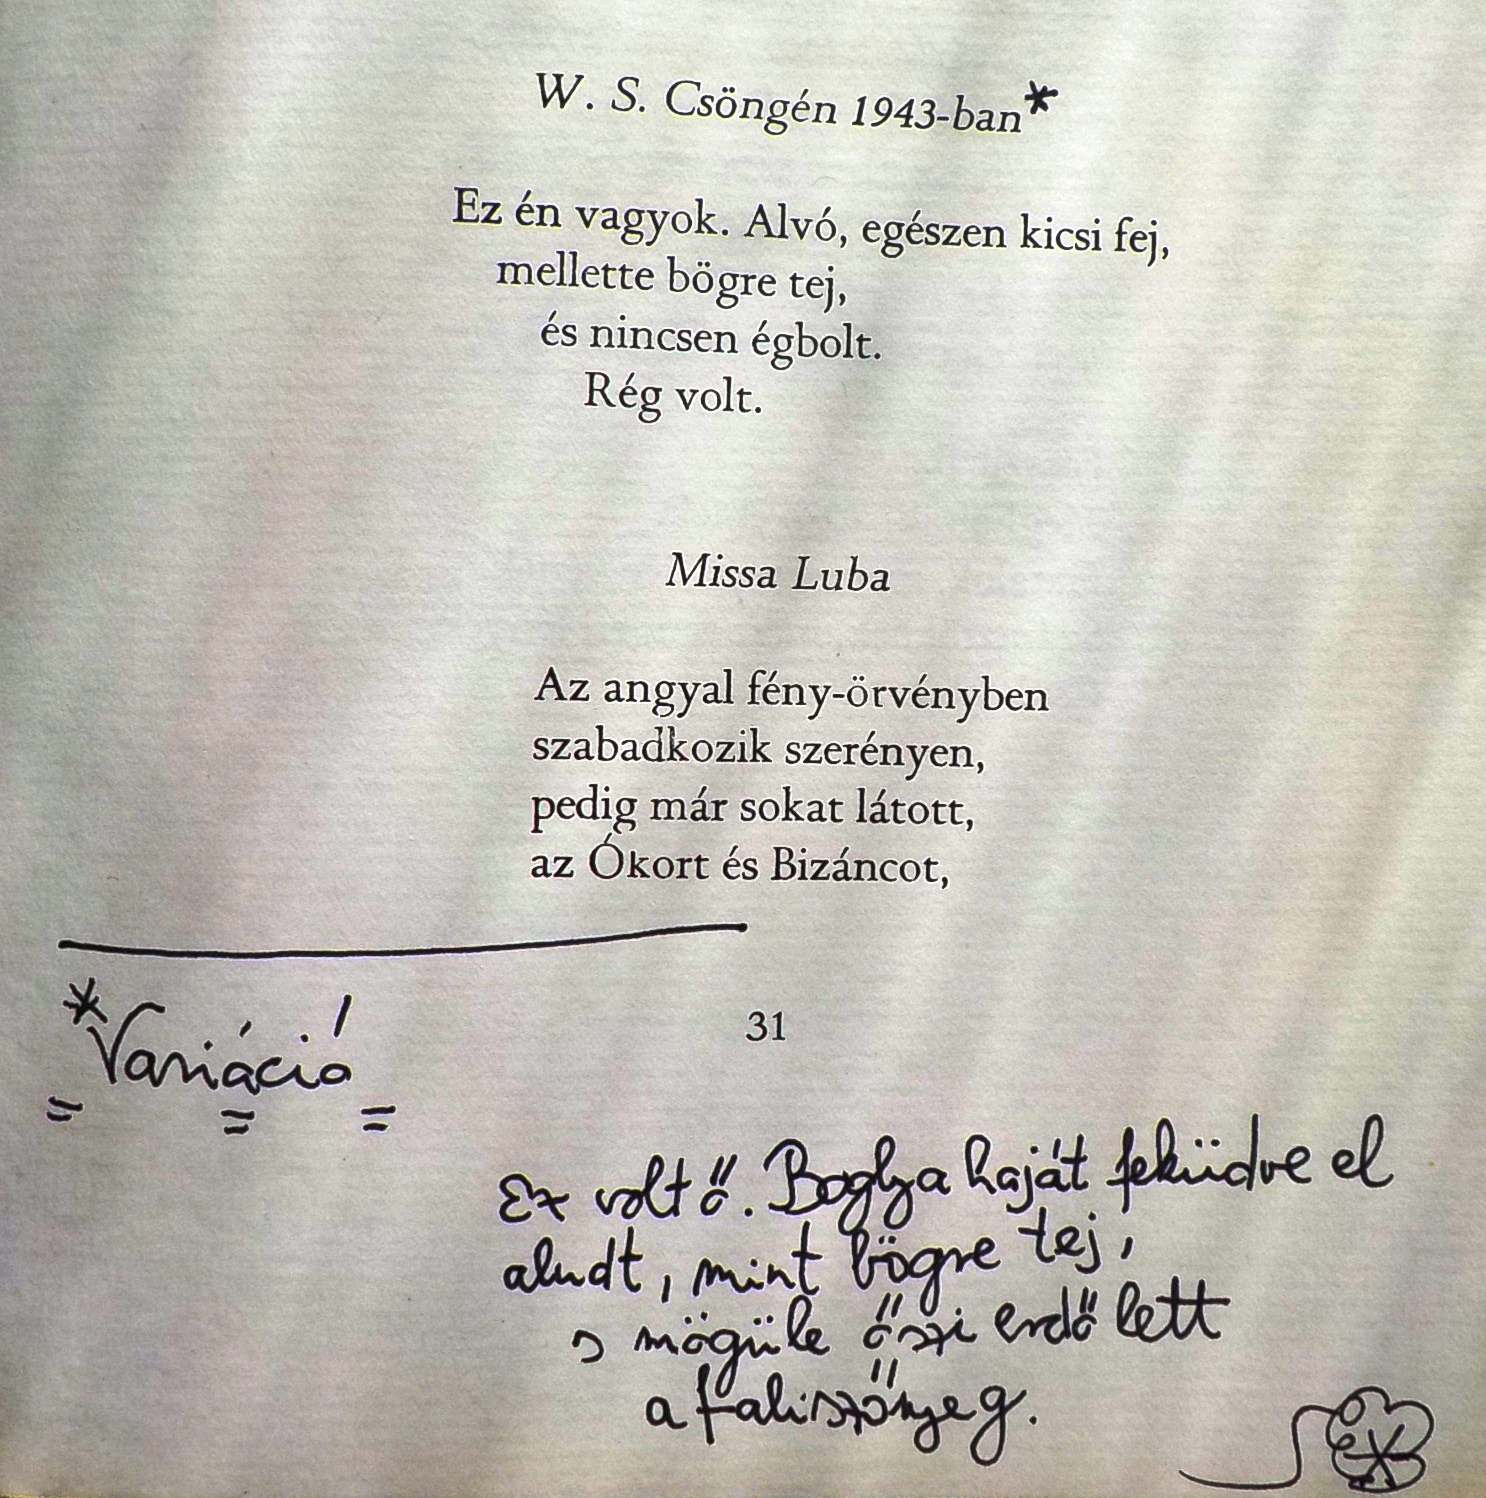 W. S. Csöngén 1943-ban*
Ez én vagyok. Alvó, egészen kicsi fej,
mellette bögre tej,
és nincsen égbolt.
Rég volt.
Missa Luba
Az angyal fény-örvényben
szabadkozik szerényen,
pedig már sokat látott,
az Ókort és Bizáncot,
*Variáció
31
Ez volt ő. Boglya haját feküdve el
aludt, mint bögre tej,
s mögüle őszi erdő lett
a faliszőnyeg.